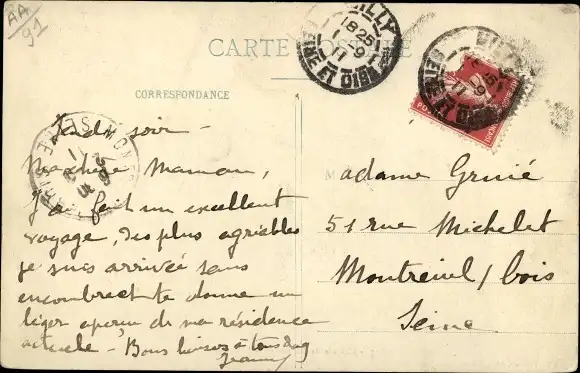 AA
91
CARTE POSTALE
CORRESPONDANCE
soir -
Ma chère Maman,
J'ai fait un excellent
voyage, des plus agréables
je suis arrivée sans
encombre et te donne un
léger aperçu de ma résidence
actuelle - Bons baisers à tous
Jeanny
adame Gruié
51 rue Michelet
Montreuil s/ bois
Seine
SEINE ET OISE
18 25
1 - 9
11